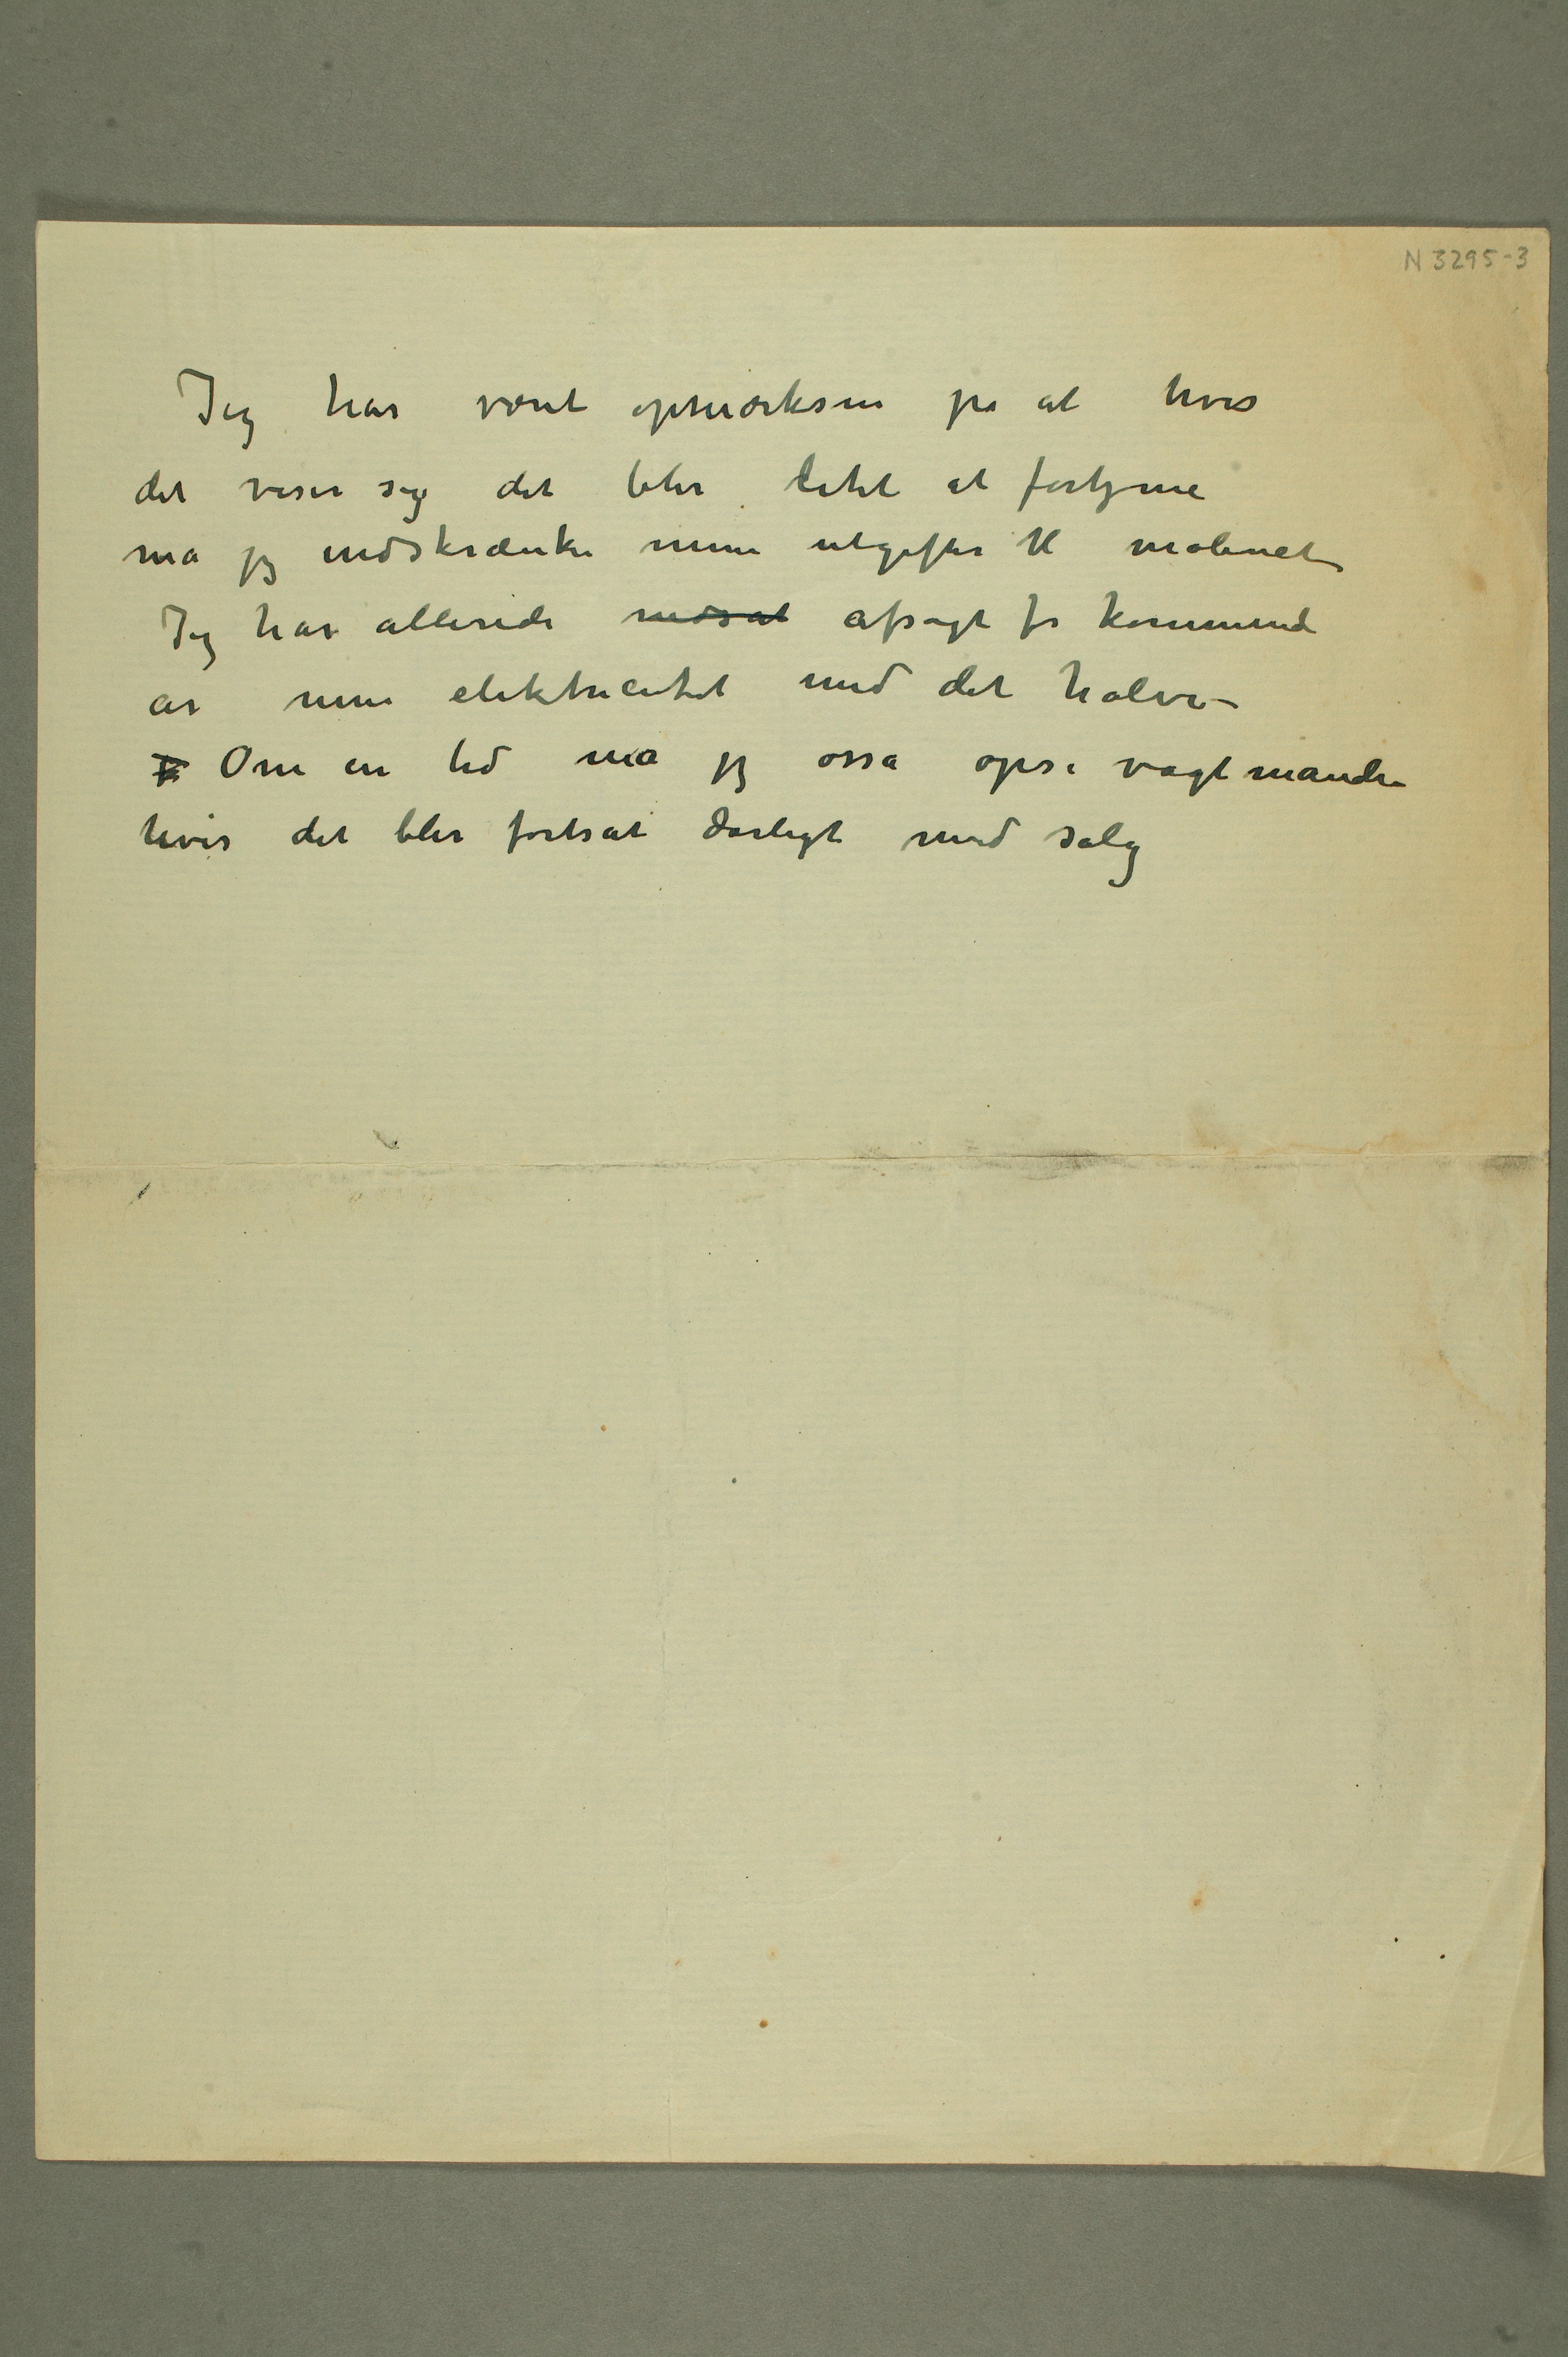 N 3295-3
Jeg har været opmærksom på at hvis
det viser sig det blir litet at fortjene
må jeg indskrænke mine utgifter til maleriet
Jeg har allerede nedsat afsagt for kommende
år min elektricitet med det halve –
Om en tid må jeg osså opsi vagtmanden
hvis det blir fortsat dårligt med salg